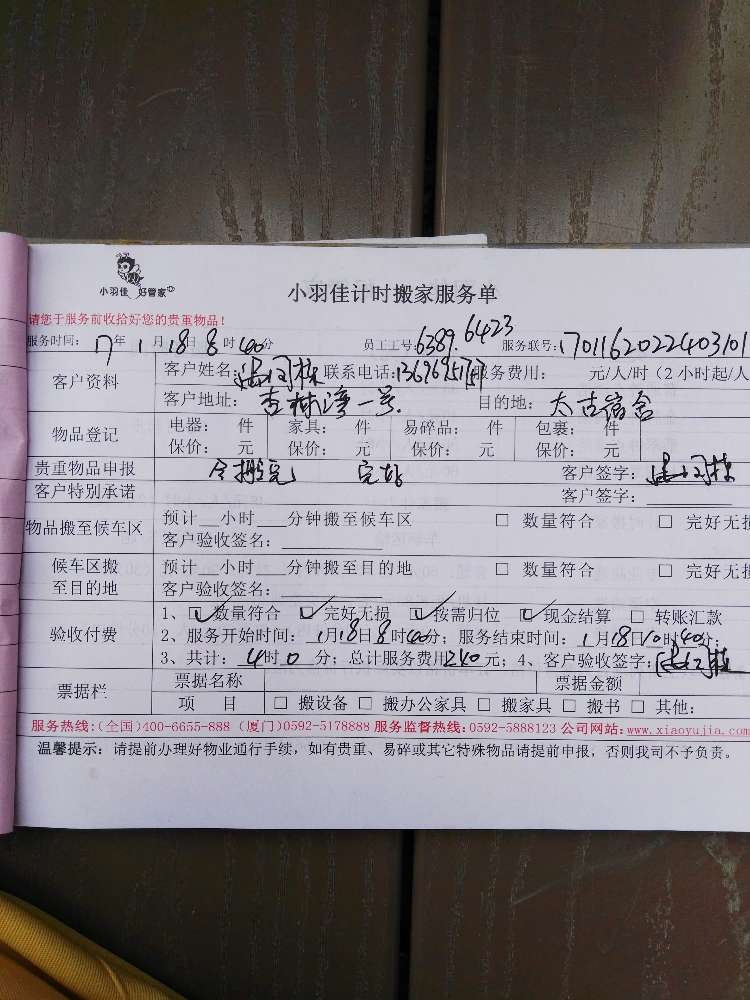 小羽佳 好管家
小羽佳计时搬家服务单
请您于服务前收拾好您的贵重物品!
服务时间: 17年 1月18日 8时40分 员工工号: 6389. 6423 服务联号: 1701162022403101
客户资料 客户姓名: 联系电话: 服务费用: 元/人/时(2小时起/人
客户地址: 杏林湾一号. 目的地: 太古宿舍
物品登记 电器: 件 家具: 件 易碎品: 件 包裹: 件
保价: 元 保价: 元 保价: 元 保价: 元
贵重物品申报 全搬完 完好 客户签字:
客户特别承诺 客户签字:
物品搬至候车区 预计 小时 分钟搬至候车区 □ 数量符合 □ 完好无损
客户验收签名:
候车区搬至目的地 预计 小时 分钟搬至目的地 □ 数量符合 □ 完好无损
客户验收签名:
验收付费 1、☑数量符合 ☑完好无损 ☑按需归位 ☑现金结算 □ 转账汇款
2、服务开始时间: 1月18日8时40分; 服务结束时间: 1月18日10时40分;
3、共计: 4时0分; 总计服务费用240元; 4、客户验收签字:
票据栏 票据名称 票据金额
项 目 □ 搬设备 □ 搬办公家具 □ 搬家具 □ 搬书 □ 其他:
服务热线:(全国)400-6655-888 (厦门)0592-5178888 服务监督热线:0592-5888123 公司网站:www.xiaoyujia.com
温馨提示: 请提前办理好物业通行手续, 如有贵重、易碎或其它特殊物品请提前申报, 否则我司不予负责。